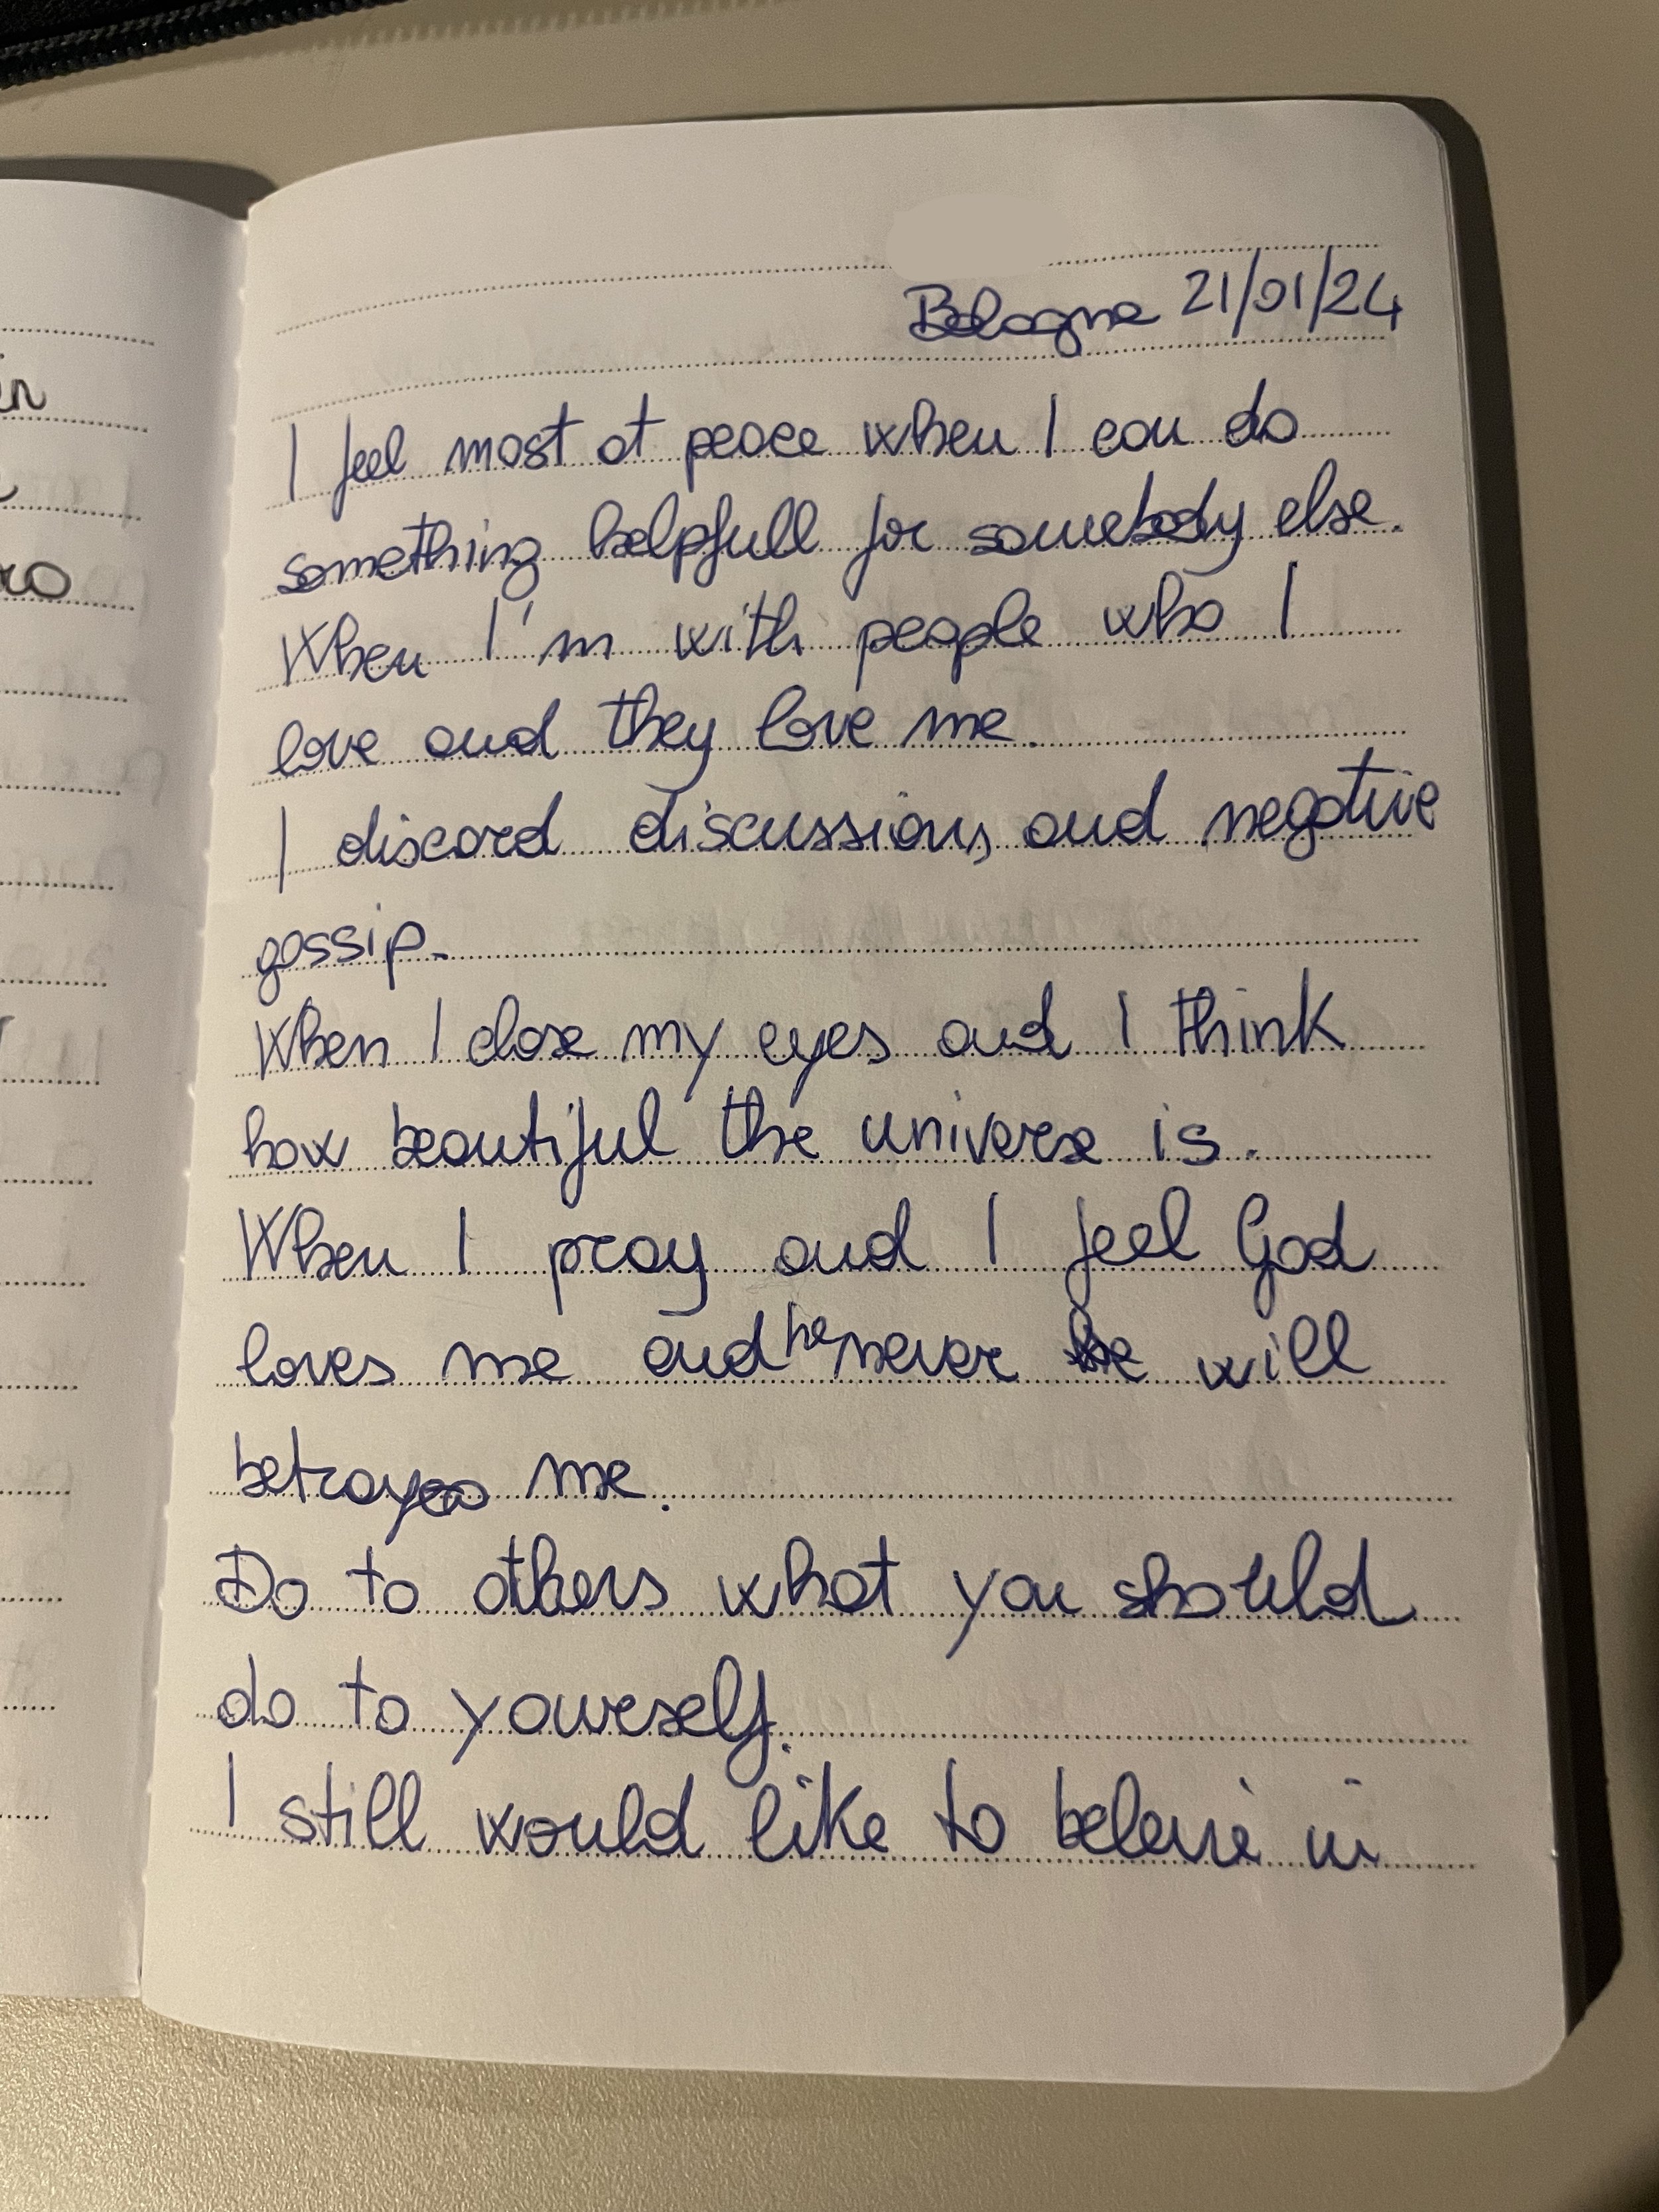 Bologna 21/01/24
I feel most at peace when I can do
something helpfull for somebody else.
When I'm with people who I
love and they love me.
I discard discussions and negative
gossip.
When I close my eyes and I think
how beautiful the universe is.
When I pray and I feel God
loves me and he never will
betray me.
Do to others what you should
do to yourself.
I still would like to beleive in